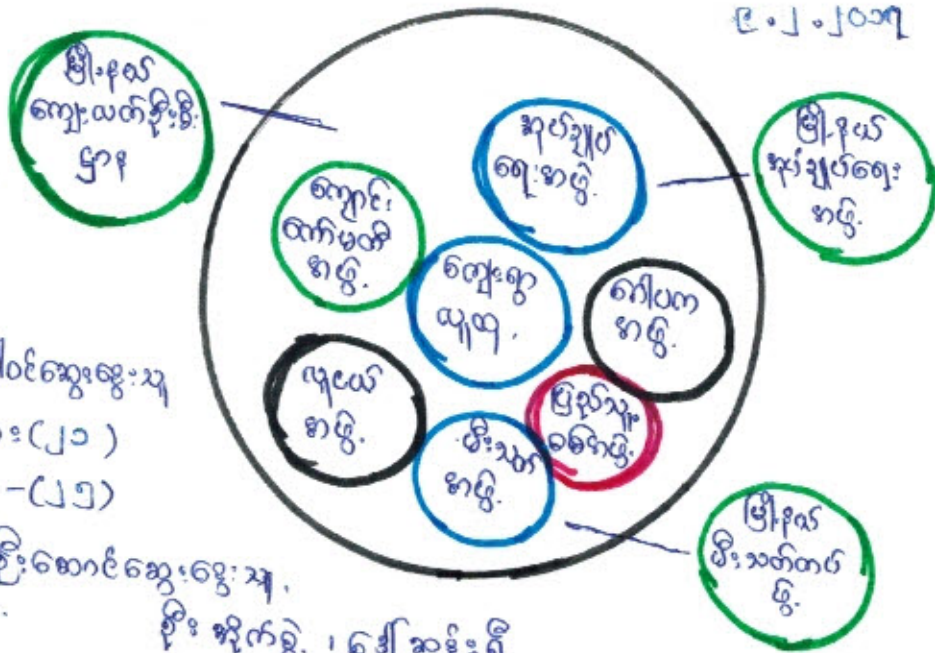 ၉.၂.၂၀၁၇
မြို့နယ်
ကျေးလက်ဦးစီး
ဌာန
အုပ်ချုပ်
ရေးအဖွဲ့
မြို့နယ်
အုပ်ချုပ်ရေး
အဖွဲ့
ကျောင်း
ကော်မတီ
အဖွဲ့
ကျေးရွာ
လူထု
ဂေါပက
အဖွဲ့
လူငယ်
အဖွဲ့
ပြည်သူ့
စစ်အဖွဲ့
မီးသတ်
အဖွဲ့
မြို့နယ်
မီးသတ်တပ်
ဖွဲ့
ါဝင်ဆွေးနွေးသူ
(၂၁)
-(၂၅)
ဦးဆောင်ဆွေးနွေးသူ
ဦးအိုက်စွဲ ၊ ဒေါ်